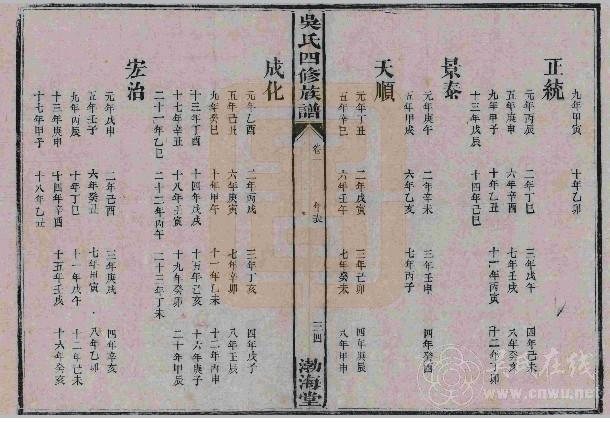 九年甲寅 十年乙卯
正統
元年丙辰 二年丁巳 三年戊午 四年己未
五年庚申 六年辛酉 七年壬戌 八年癸亥
九年甲子 十年乙丑 十一年丙寅 十二年丁卯
十三年戊辰 十四年己巳
景泰
元年庚午 二年辛未 三年壬申 四年癸酉
五年甲戌 六年乙亥 七年丙子
天順
元年丁丑 二年戊寅 三年己卯 四年庚辰
五年辛巳 六年壬午 七年癸未 八年甲申
吳氏四修族譜 卷一 年表 三四 渤海堂
成化
元年乙酉 二年丙戌 三年丁亥 四年戊子
五年己丑 六年庚寅 七年辛卯 八年壬辰
九年癸巳 十年甲午 十一年乙未 十二年丙申
十三年丁酉 十四年戊戌 十五年己亥 十六年庚子
十七年辛丑 十八年壬寅 十九年癸卯 二十年甲辰
二十一年乙巳 二十二年丙午 二十三年丁未
宏治
元年戊申 二年己酉 三年庚戌 四年辛亥
五年壬子 六年癸丑 七年甲寅 八年乙卯
九年丙辰 十年丁巳 十一年戊午 十二年己未
十三年庚申 十四年辛酉 十五年壬戌 十六年癸亥
十七年甲子 十八年乙丑
吴氏在线
www.cnwu.net